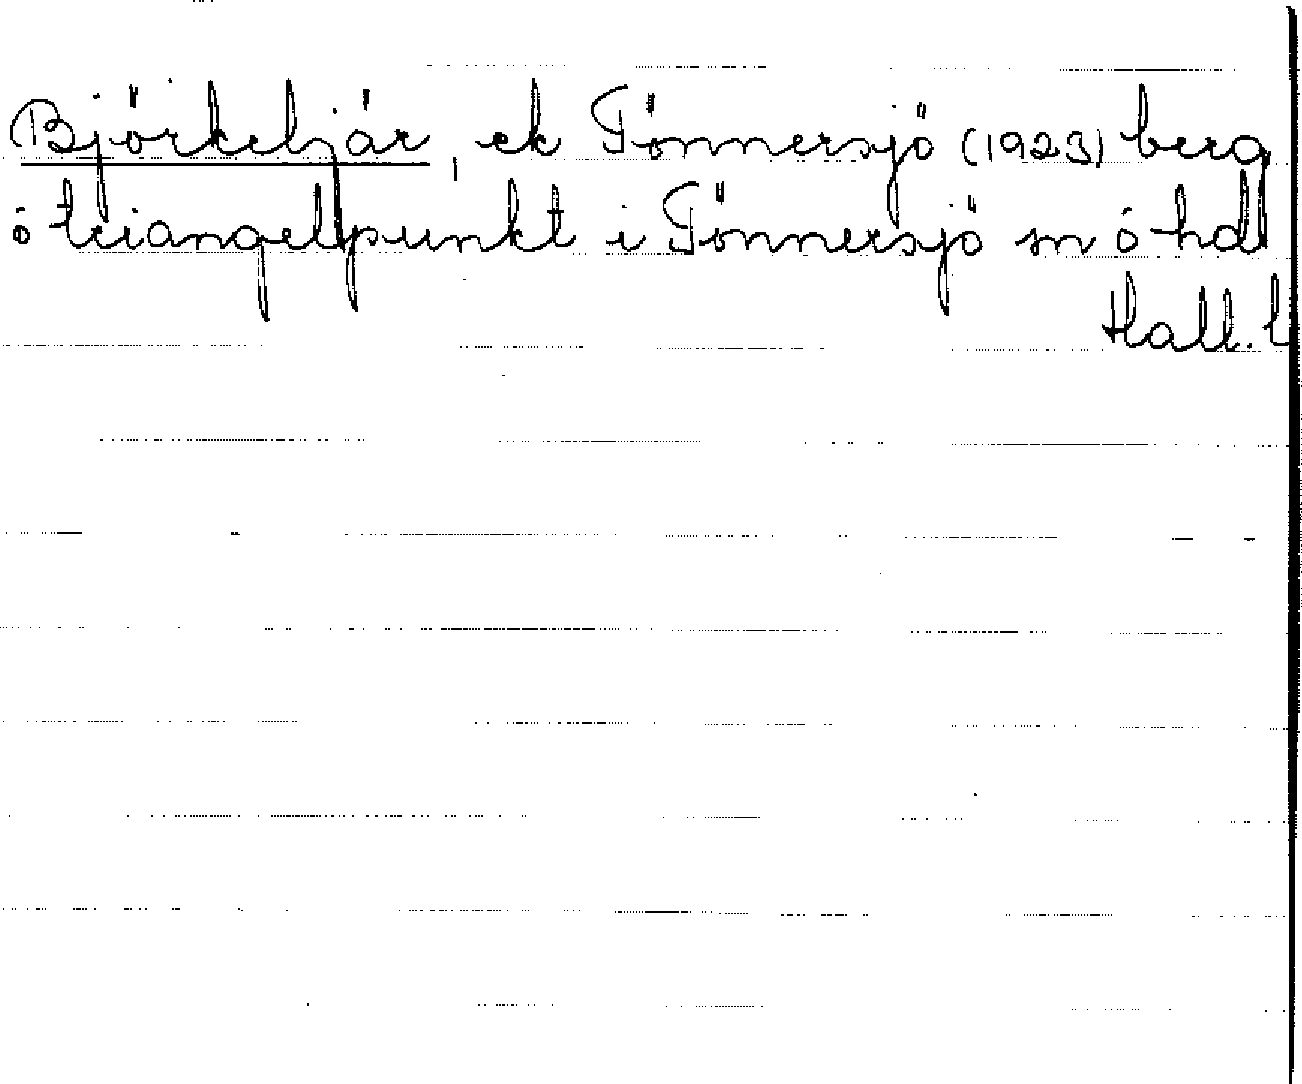 Björkebjär, ek Tönnersjö (1923) berg
o triangelpunkt i Tönnersjö sn o hd
Hall. l